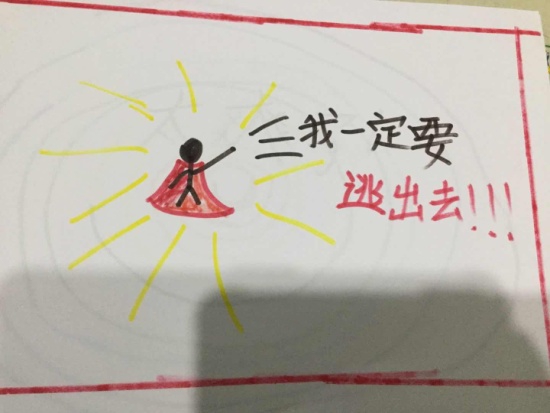 我一定要
逃出去!!!